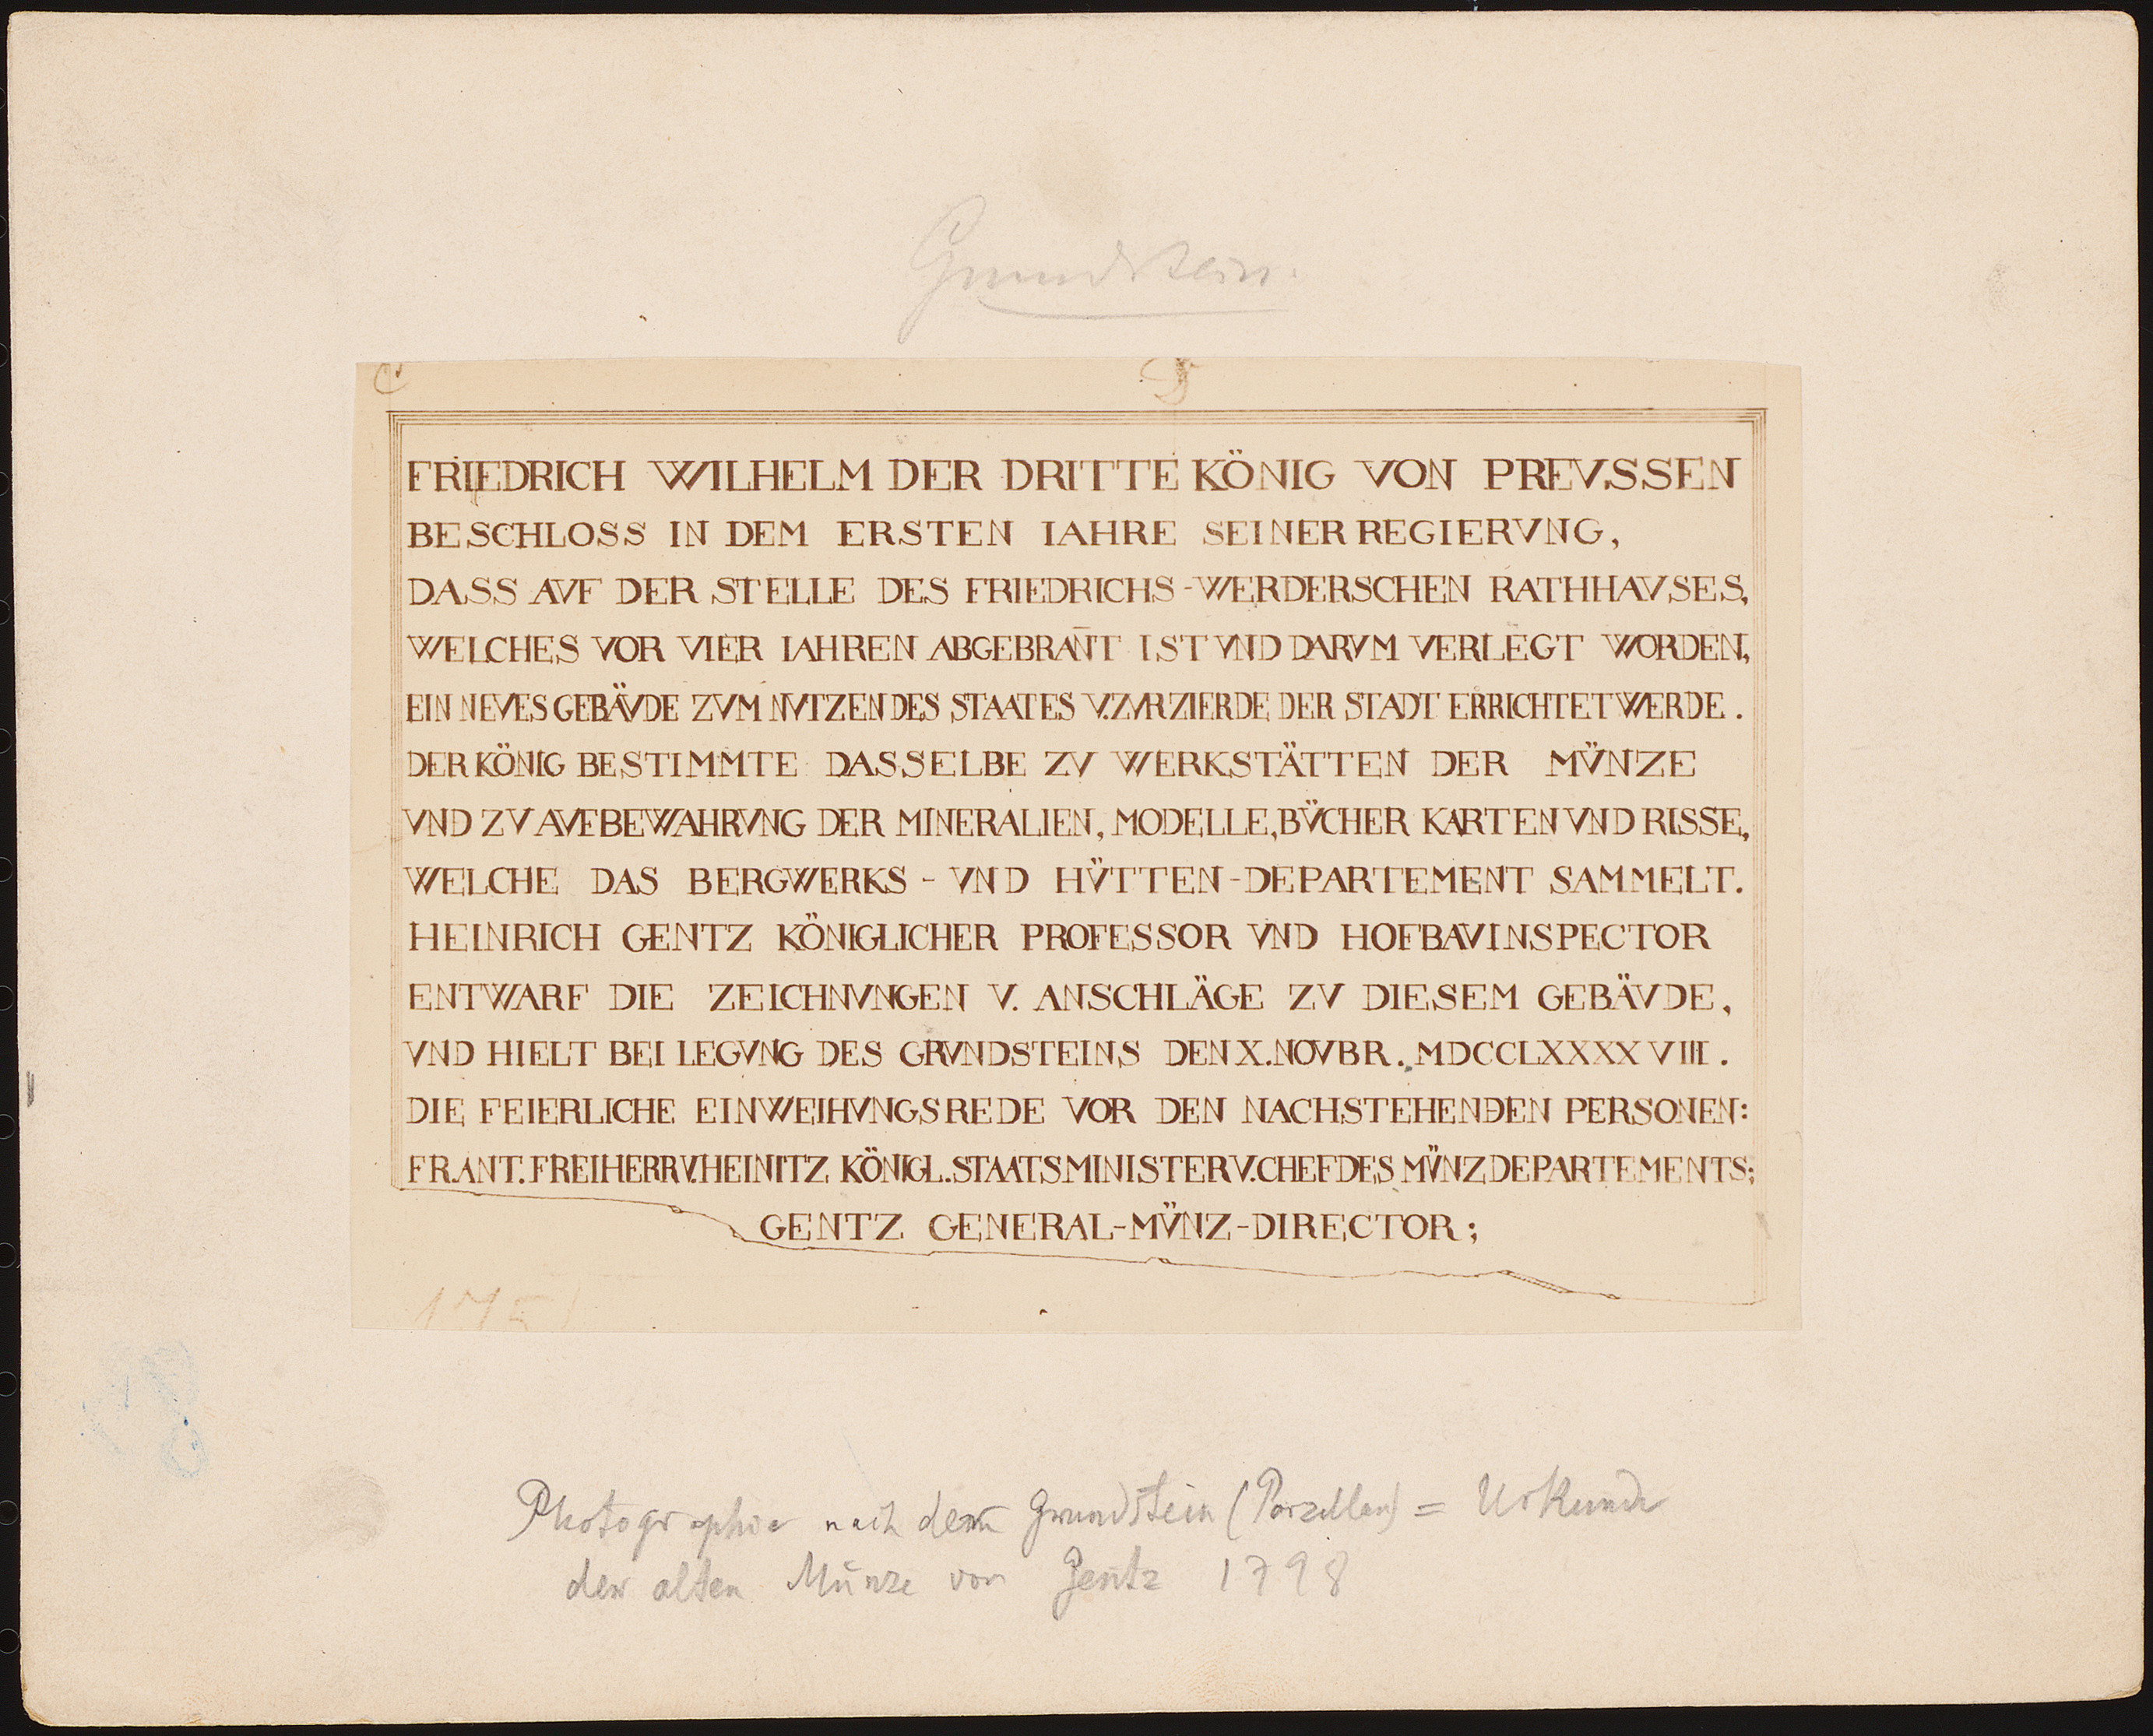 Grundstein.
FRIEDRICH WILHELM DER DRITTE KÖNIG VON PREVSSEN
BESCHLOSS IN DEM ERSTEN IAHRE SEINER REGIERVNG,
DASS AVF DER STELLE DES FRIEDRICHS-WERDERSCHEN RATHHAVSES,
WELCHES VOR VIER IAHREN ABGEBRAN̄T IST VND DARVM VERLEGT WORDEN,
EIN NEVES GEBÄVDE ZVM NVTZEN DES STAATES V. ZVR ZIERDE DER STADT ERRICHTET WERDE.
DER KÖNIG BESTIMMTE DASSELBE ZV WERKSTÄTTEN DER MV̈NZE
VND ZV AVFBEWAHRVNG DER MINERALIEN, MODELLE, BV̈CHER KARTEN VND RISSE,
WELCHE DAS BERGWERKS - VND HV̈TTEN-DEPARTEMENT SAMMELT.
HEINRICH GENTZ KÖNIGLICHER PROFESSOR VND HOFBAVINSPECTOR
ENTWARF DIE ZEICHNVNGEN V. ANSCHLÄGE ZV DIESEM GEBÄVDE,
VND HIELT BEI LEGVNG DES GRVNDSTEINS DEN X. NOVBR. MDCCLXXXXVIII.
DIE FEIERLICHE EINWEIHVNGSREDE VOR DEN NACHSTEHENDEN PERSONEN:
FR. ANT. FREIHERR V. HEINITZ KÖNIGL. STAATSMINISTER V. CHEF DES MV̈NZDEPARTEMENTS;
GENTZ GENERAL-MV̈NZ-DIRECTOR;
Photographie nach dem Grundstein (Porzellan) = Urkunde
der alten Münze von Gentz 1798